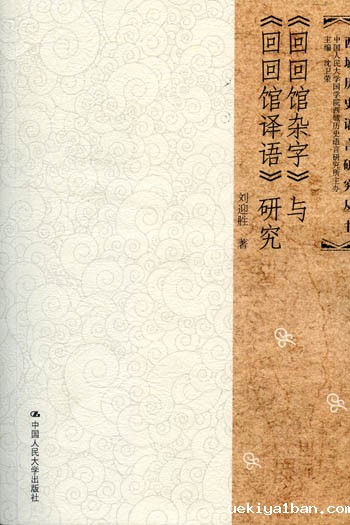 西域历史语言研究丛书
中国人民大学国学院西域历史语言研究所主办
主编 沈卫荣
《回回馆杂字》与
《回回馆译语》研究
刘迎胜 著
中国人民大学出版社
uekiyalban.com